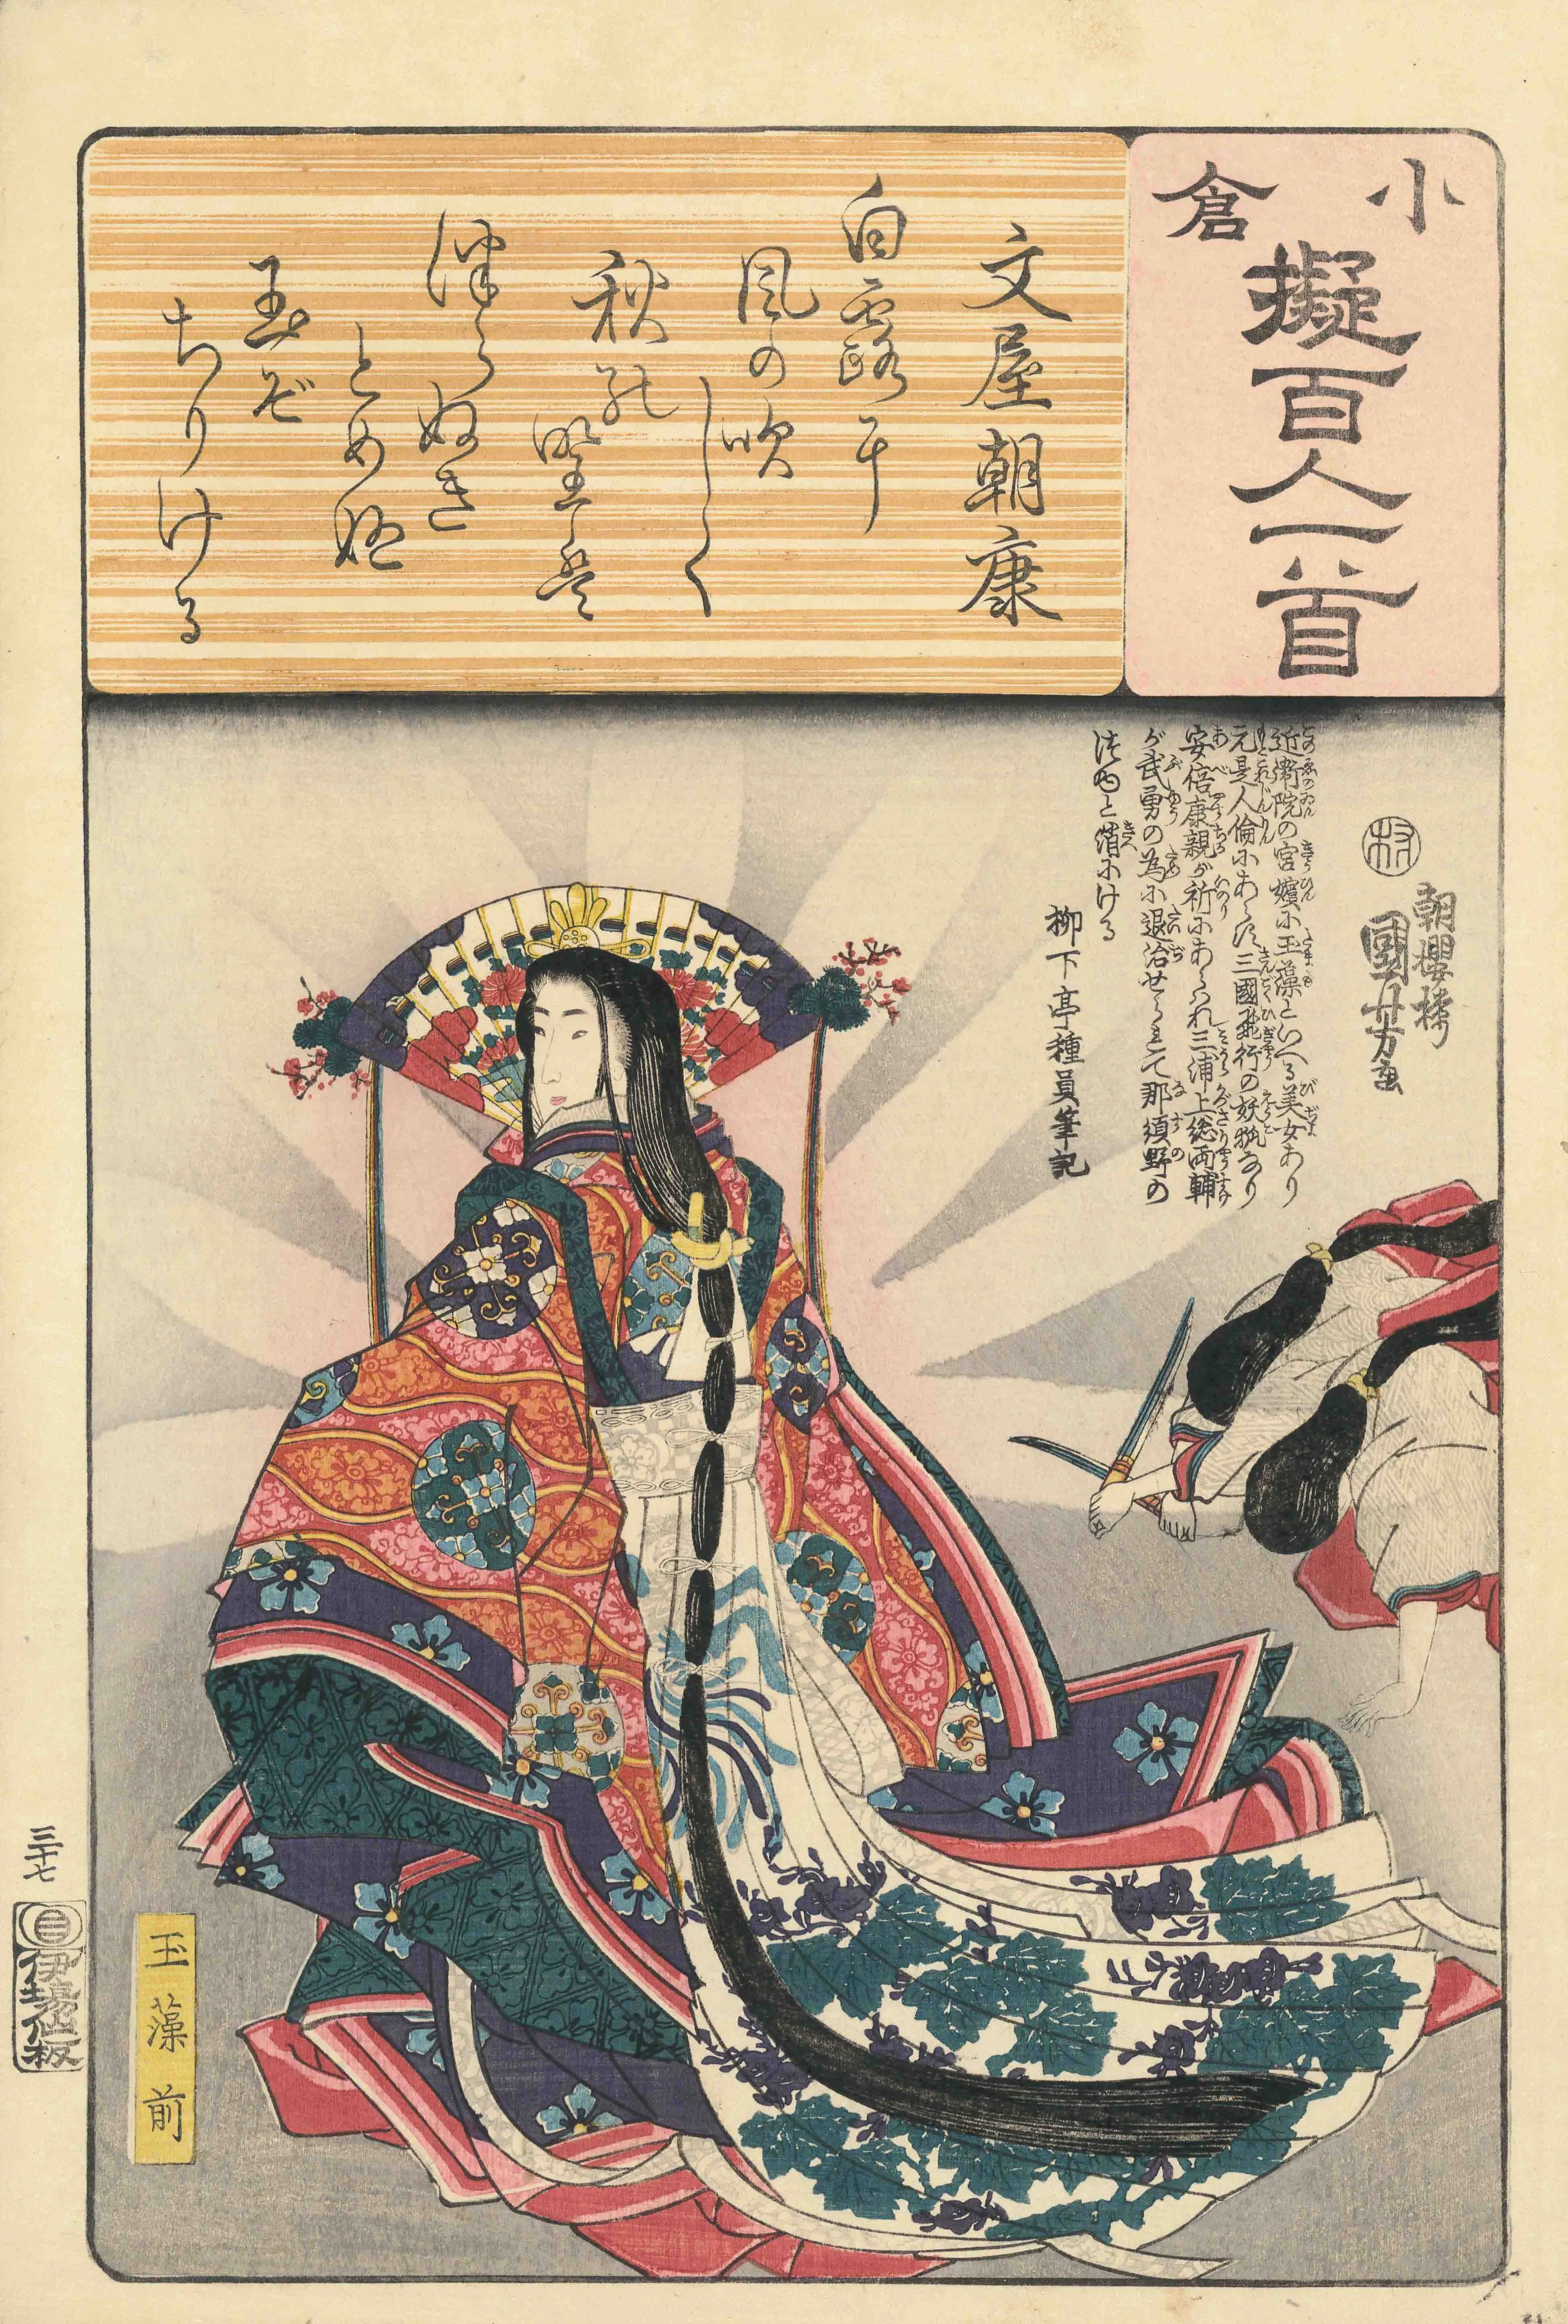 小倉
擬百人一首
文屋朝康
白露に
風の吹
しく
秋の野は
つらぬき
とめぬ
玉ぞ
ちりける
朝櫻楼
國芳画
近衛院の宮嬪に玉藻といへる美女あり
元是人倫にあらず三國飛行の妖狐なり
安倍康親が祈にあらはれ三浦上総両輔
が武勇の為に退治せられて那須野の
柳下亭種員筆記
玉藻前
三十七
伊場仙板